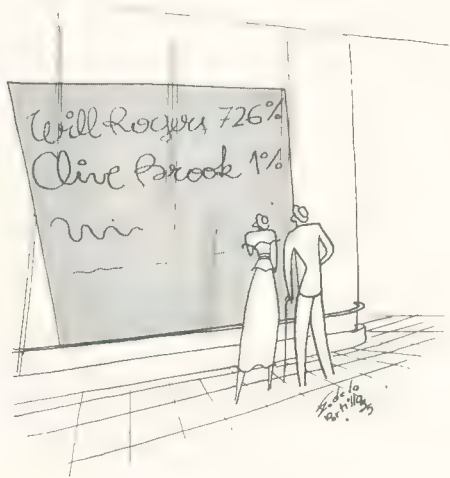 Will Rogers 726%
Clive Brook 1%
de la
Portilla